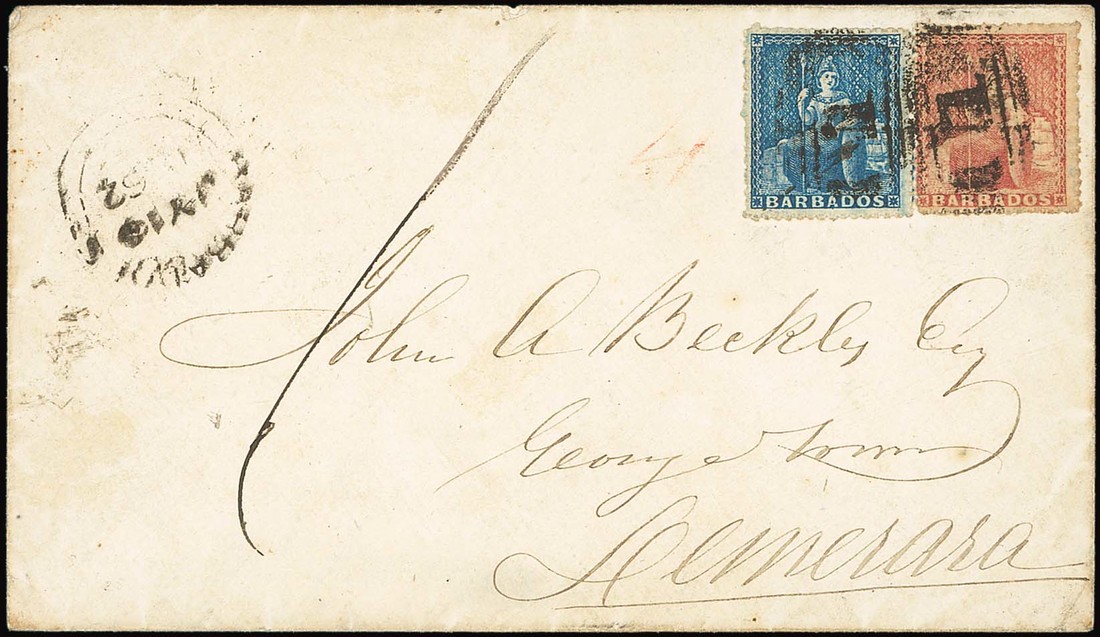 BARBADOS
BARBADOS
1
John A Beckles Esq
George town
Demerara